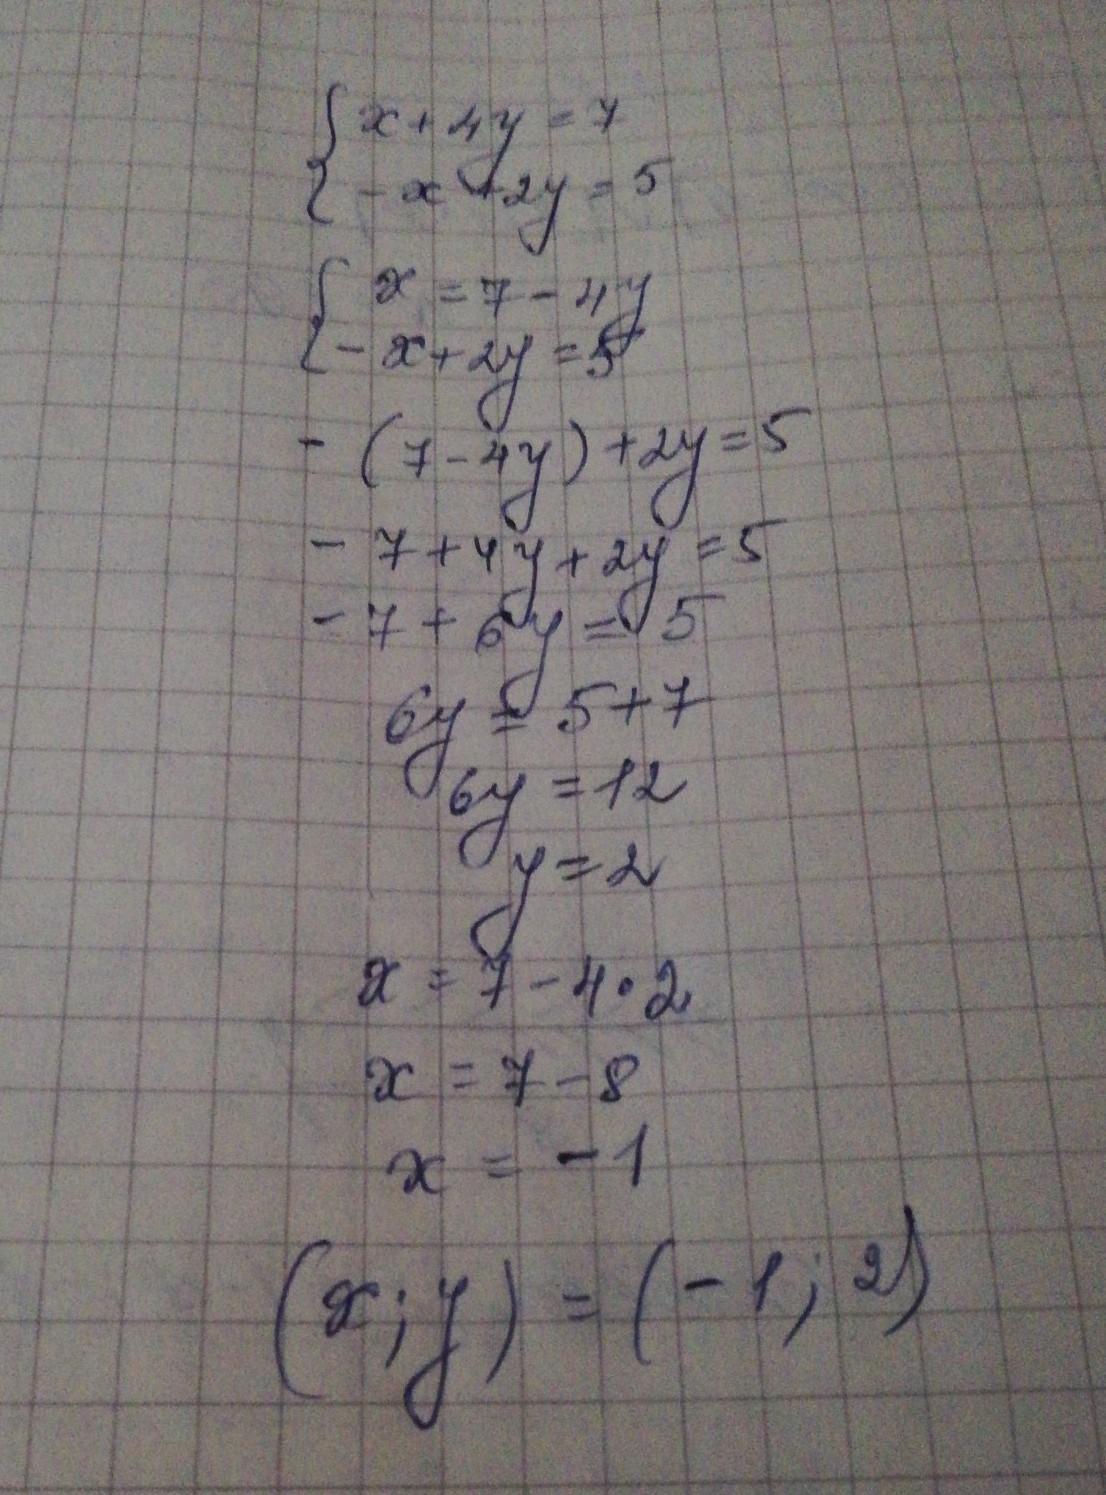 { x + 4y = 7
{ - x + 2y = 5
{ x = 7 - 4y
{ - x + 2y = 5
- (7 - 4y) + 2y = 5
- 7 + 4y + 2y = 5
- 7 + 6y = 5
6y = 5 + 7
6y = 12
y = 2
x = 7 - 4 · 2
x = 7 - 8
x = - 1
(x; y) = (- 1; 2)